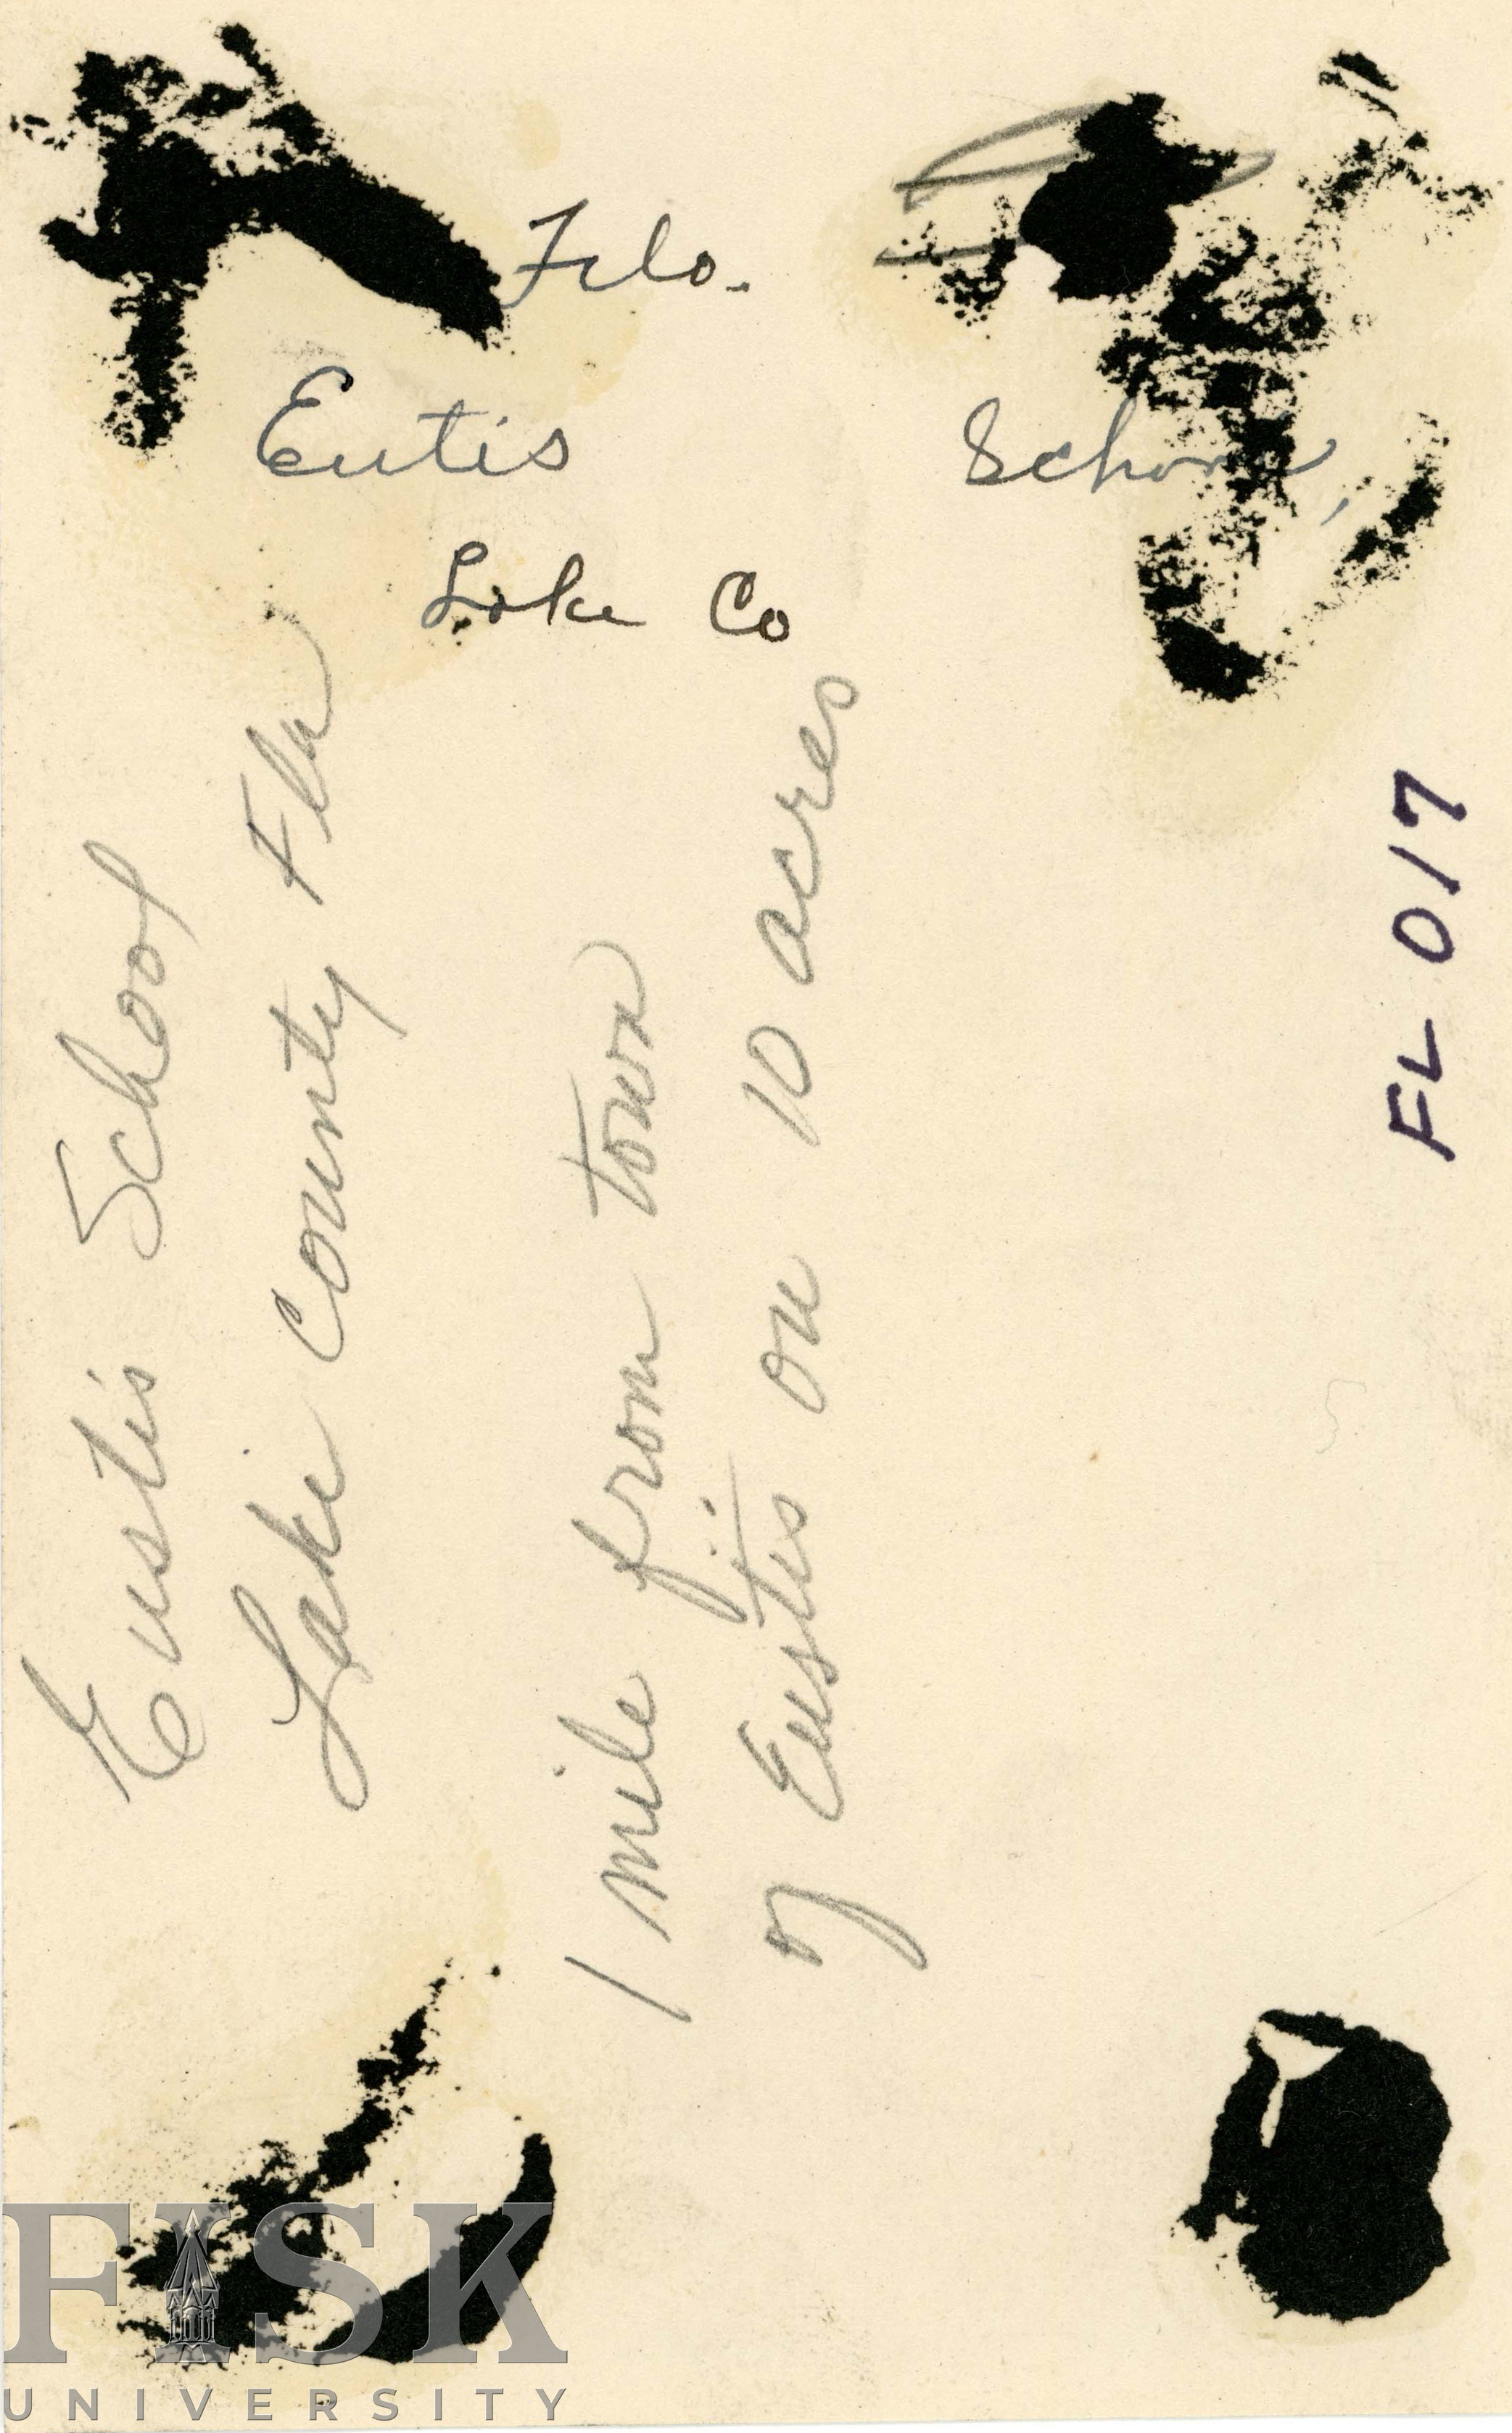 Flo.
Eutis
Lake Co
Eustis School
Lake County Fla
1 mile from town
of Eustis on 10 acres
FL 017
FISK
UNIVERSITY